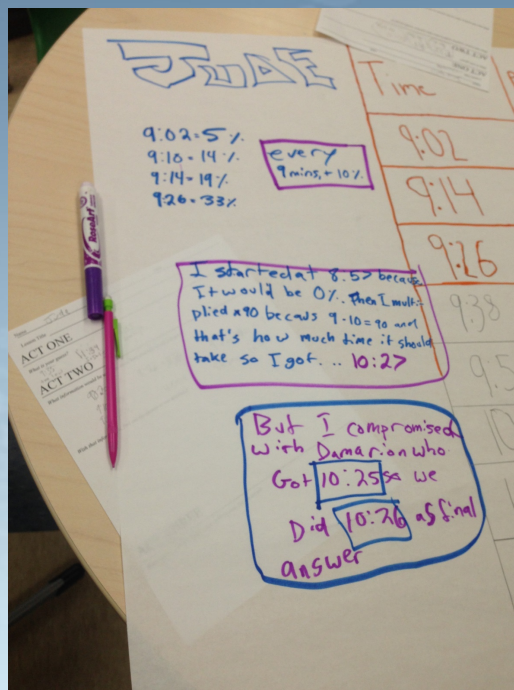 JUDE
9:02=5%
9:10=14%
9:14=19%
9:26=33%
every
9 mins, + 10%
I started at 8:57 becaus
It would be 0%. Then I multi-
plied ×90 becaws 9·10=90 and
that's how much time it should
take so I got... 10:27
But I compromised
with Damarion who
Got 10:25 so we
Did 10:26 as final
answer
Time
9:02
9:14
9:26
9:38
9:5
10
RoseArt
ACT ONE
ACT TWO
ACT TWO